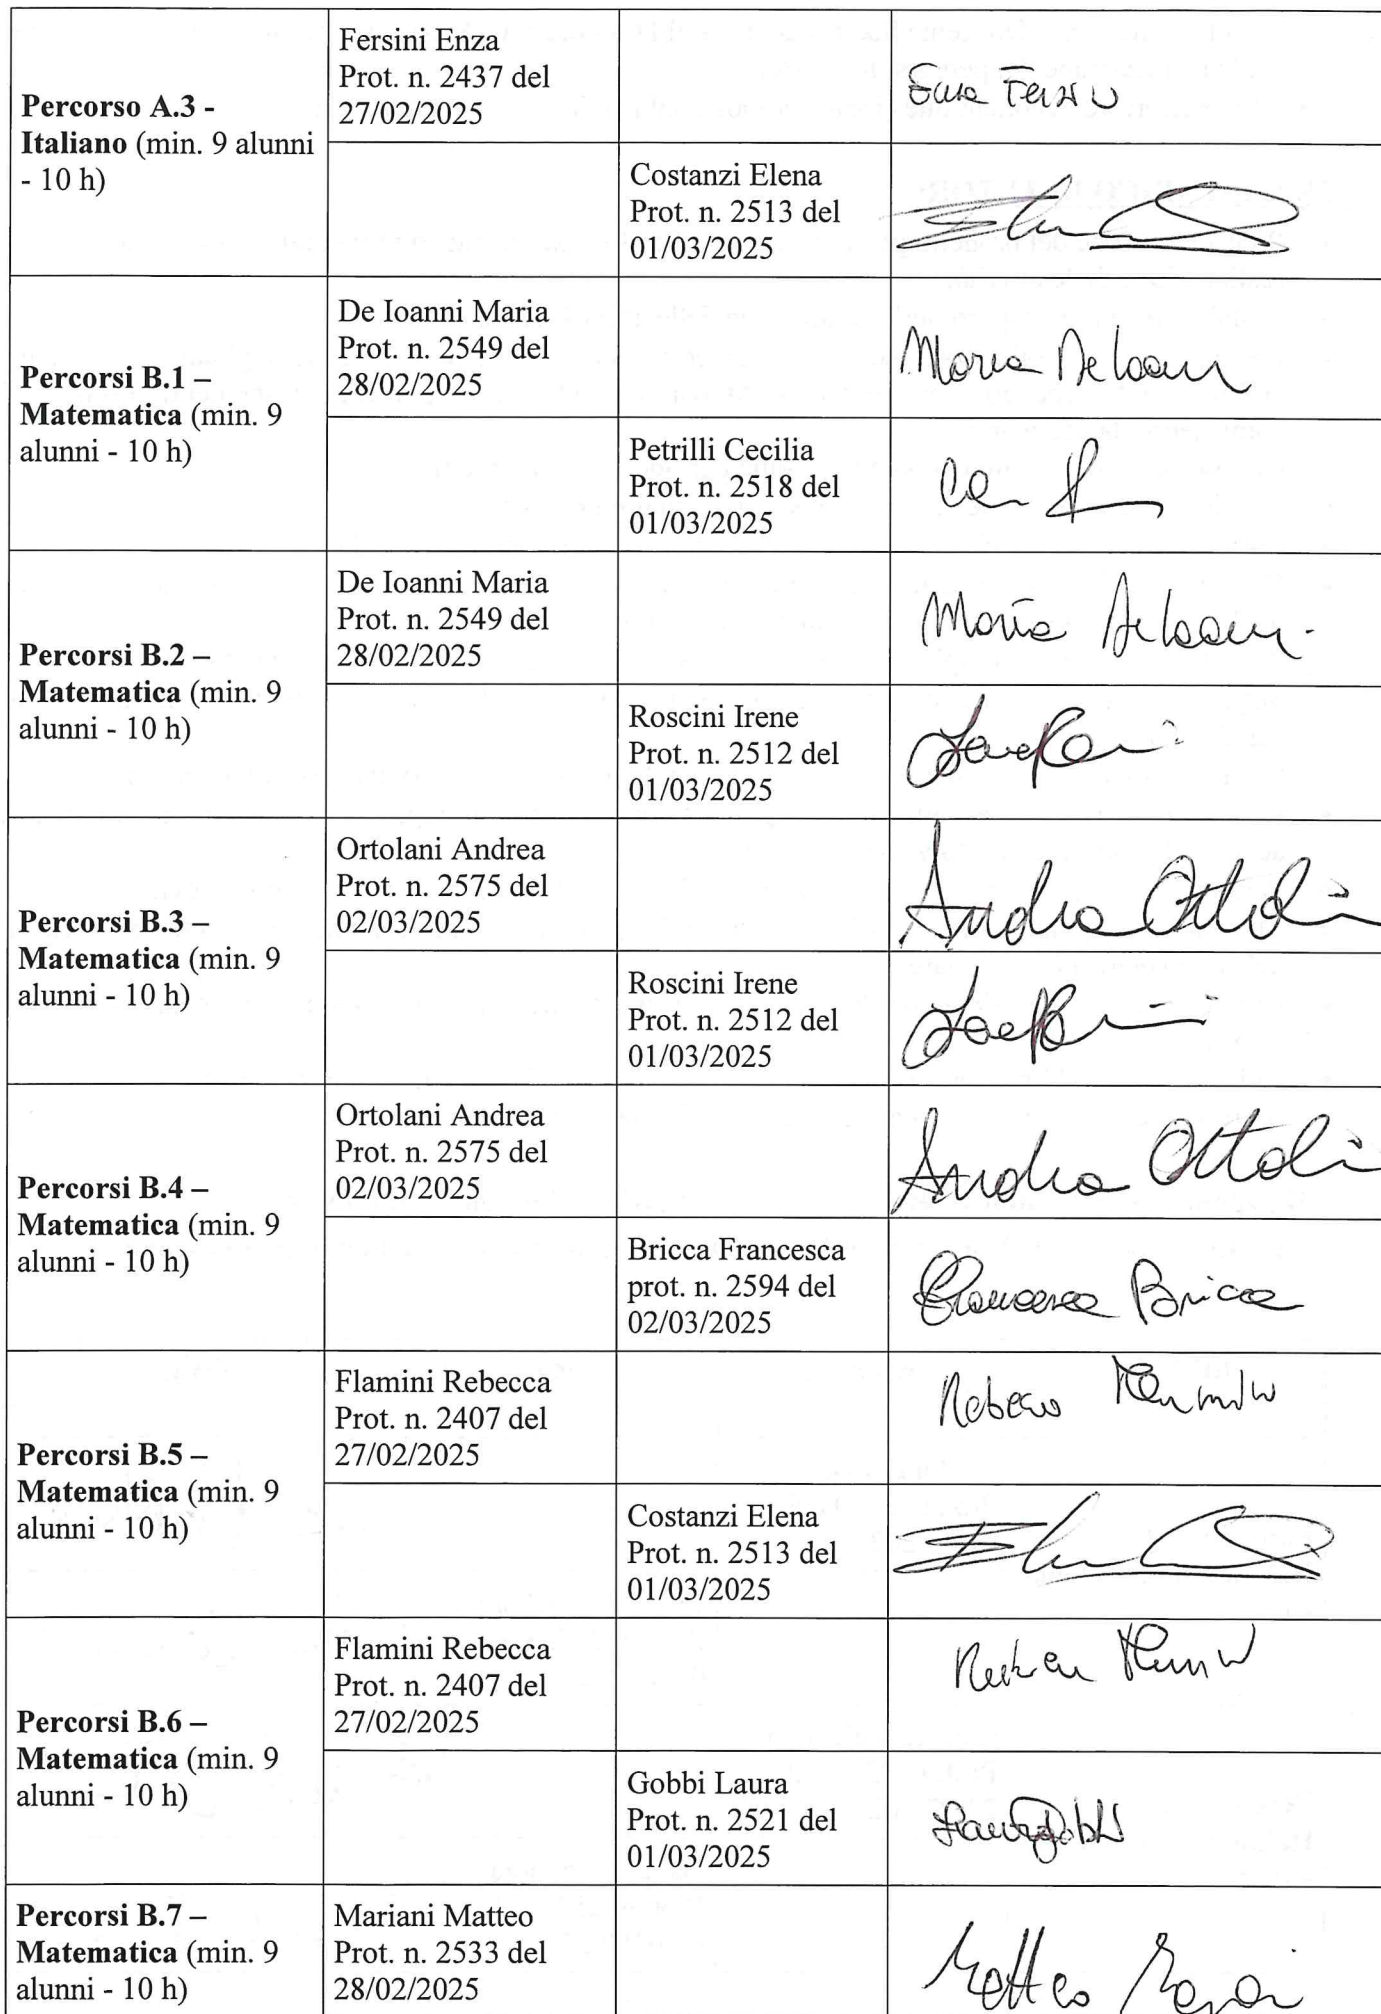 Percorso A.3 -
Italiano (min. 9 alunni
- 10 h)
Fersini Enza
Prot. n. 2437 del
27/02/2025
Costanzi Elena
Prot. n. 2513 del
01/03/2025
Percorsi B.1 –
Matematica (min. 9
alunni - 10 h)
De Ioanni Maria
Prot. n. 2549 del
28/02/2025
Maria
Petrilli Cecilia
Prot. n. 2518 del
01/03/2025
Percorsi B.2 –
Matematica (min. 9
alunni - 10 h)
De Ioanni Maria
Prot. n. 2549 del
28/02/2025
Maria
Roscini Irene
Prot. n. 2512 del
01/03/2025
Percorsi B.3 –
Matematica (min. 9
alunni - 10 h)
Ortolani Andrea
Prot. n. 2575 del
02/03/2025
Andrea
Roscini Irene
Prot. n. 2512 del
01/03/2025
Percorsi B.4 –
Matematica (min. 9
alunni - 10 h)
Ortolani Andrea
Prot. n. 2575 del
02/03/2025
Andrea
Bricca Francesca
prot. n. 2594 del
02/03/2025
Francesca Bricca
Percorsi B.5 –
Matematica (min. 9
alunni - 10 h)
Flamini Rebecca
Prot. n. 2407 del
27/02/2025
Costanzi Elena
Prot. n. 2513 del
01/03/2025
Percorsi B.6 –
Matematica (min. 9
alunni - 10 h)
Flamini Rebecca
Prot. n. 2407 del
27/02/2025
Gobbi Laura
Prot. n. 2521 del
01/03/2025
Percorsi B.7 –
Matematica (min. 9
alunni - 10 h)
Mariani Matteo
Prot. n. 2533 del
28/02/2025
Matteo